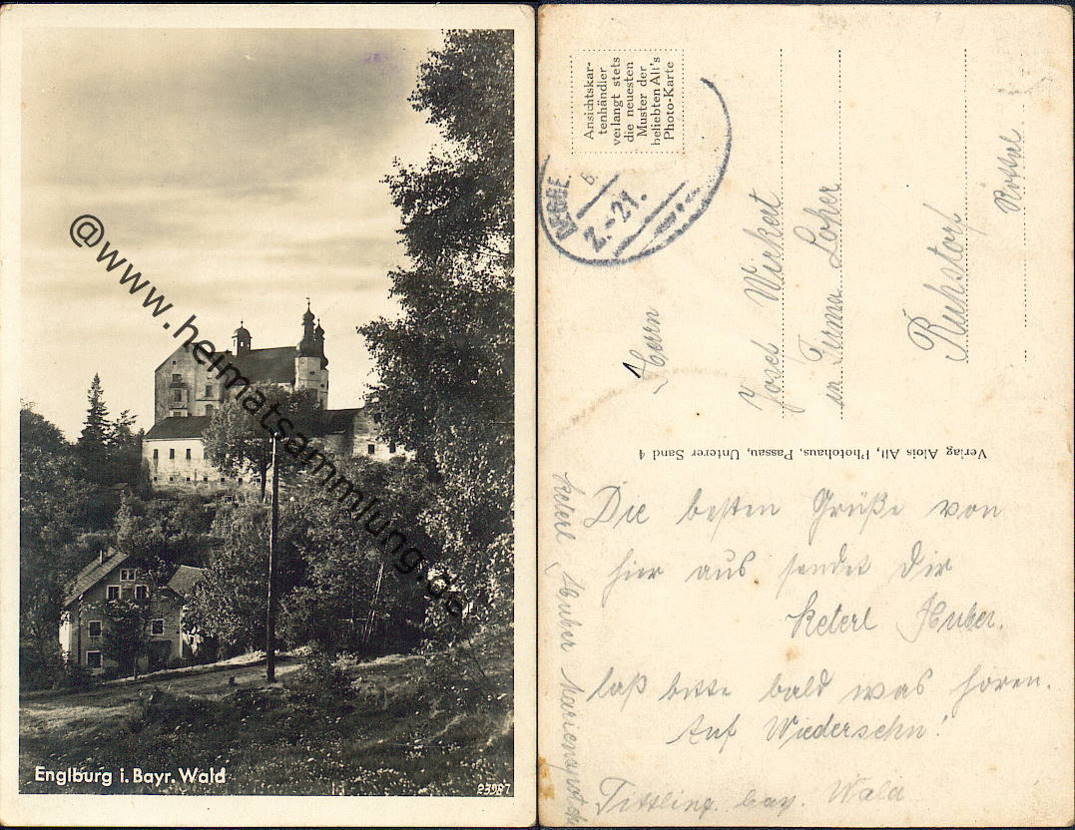 @www.heimatsammlung.de
Englburg i. Bayr. Wald
23987
Ansichtskar-
tenhändler
verlangt stets
die neuesten
Muster der
beliebten Alt's
Photo-Karte
2.-21.
Herrn
Josef Wirkert
in Firma Loher
Ruhstorf
Rottal
Verlag Alois Alt, Photohaus, Passau, Unterer Sand 4
Die besten Grüße von
hier aus sendet Dir
Keterl Huber.
laß bitte bald was hören.
Auf Wiedersehn!
Tittling. bay. Wald
Keterl Huber